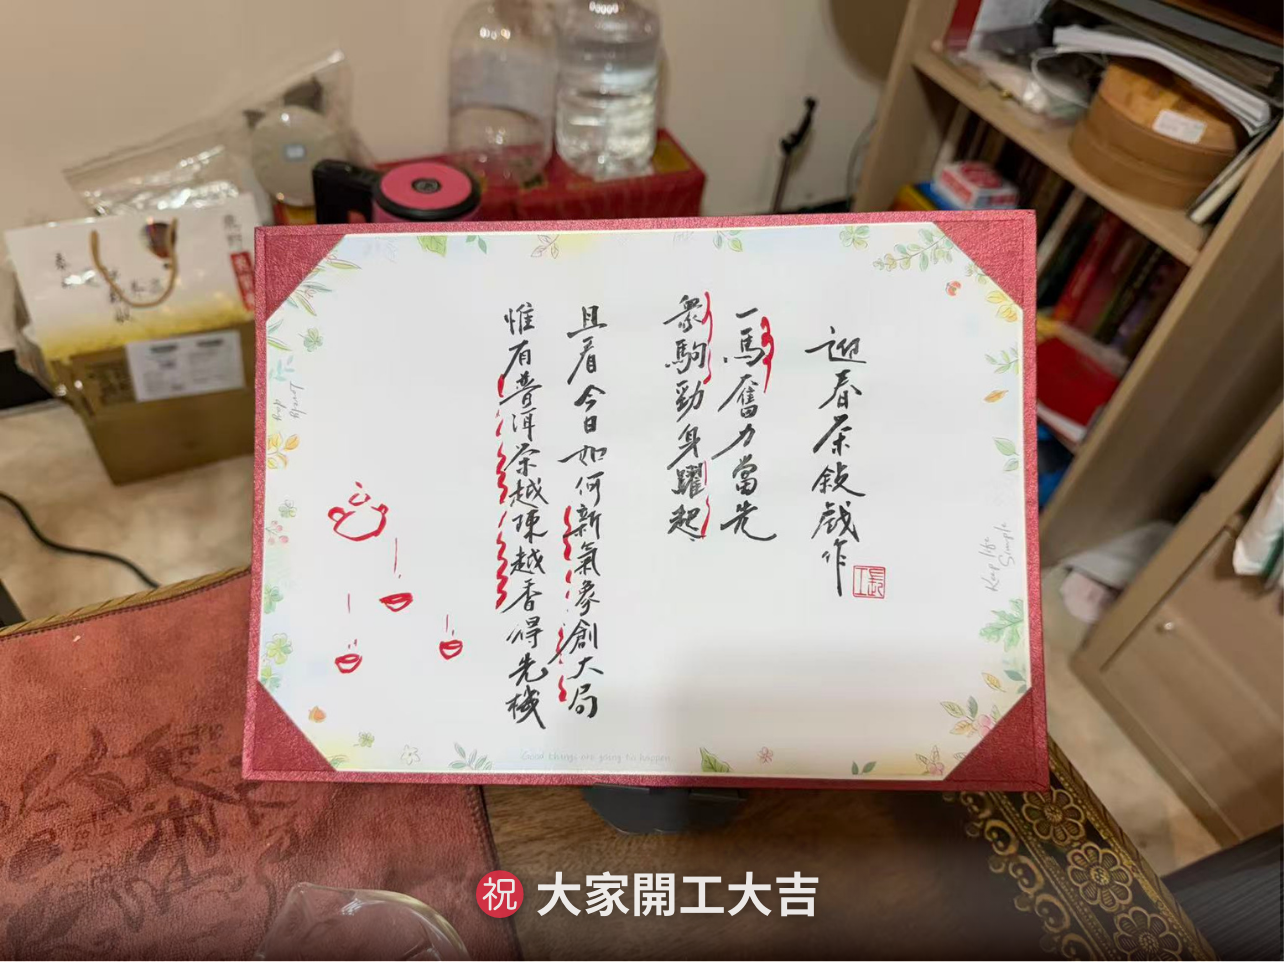 迎春茶敍戲作
一馬奮力當先
眾駒勁身躍起
且看今日如何新氣象創大局
惟有普洱茶越陳越香得先機
Keep life Simple
Good things are going to happen
祝 大家開工大吉